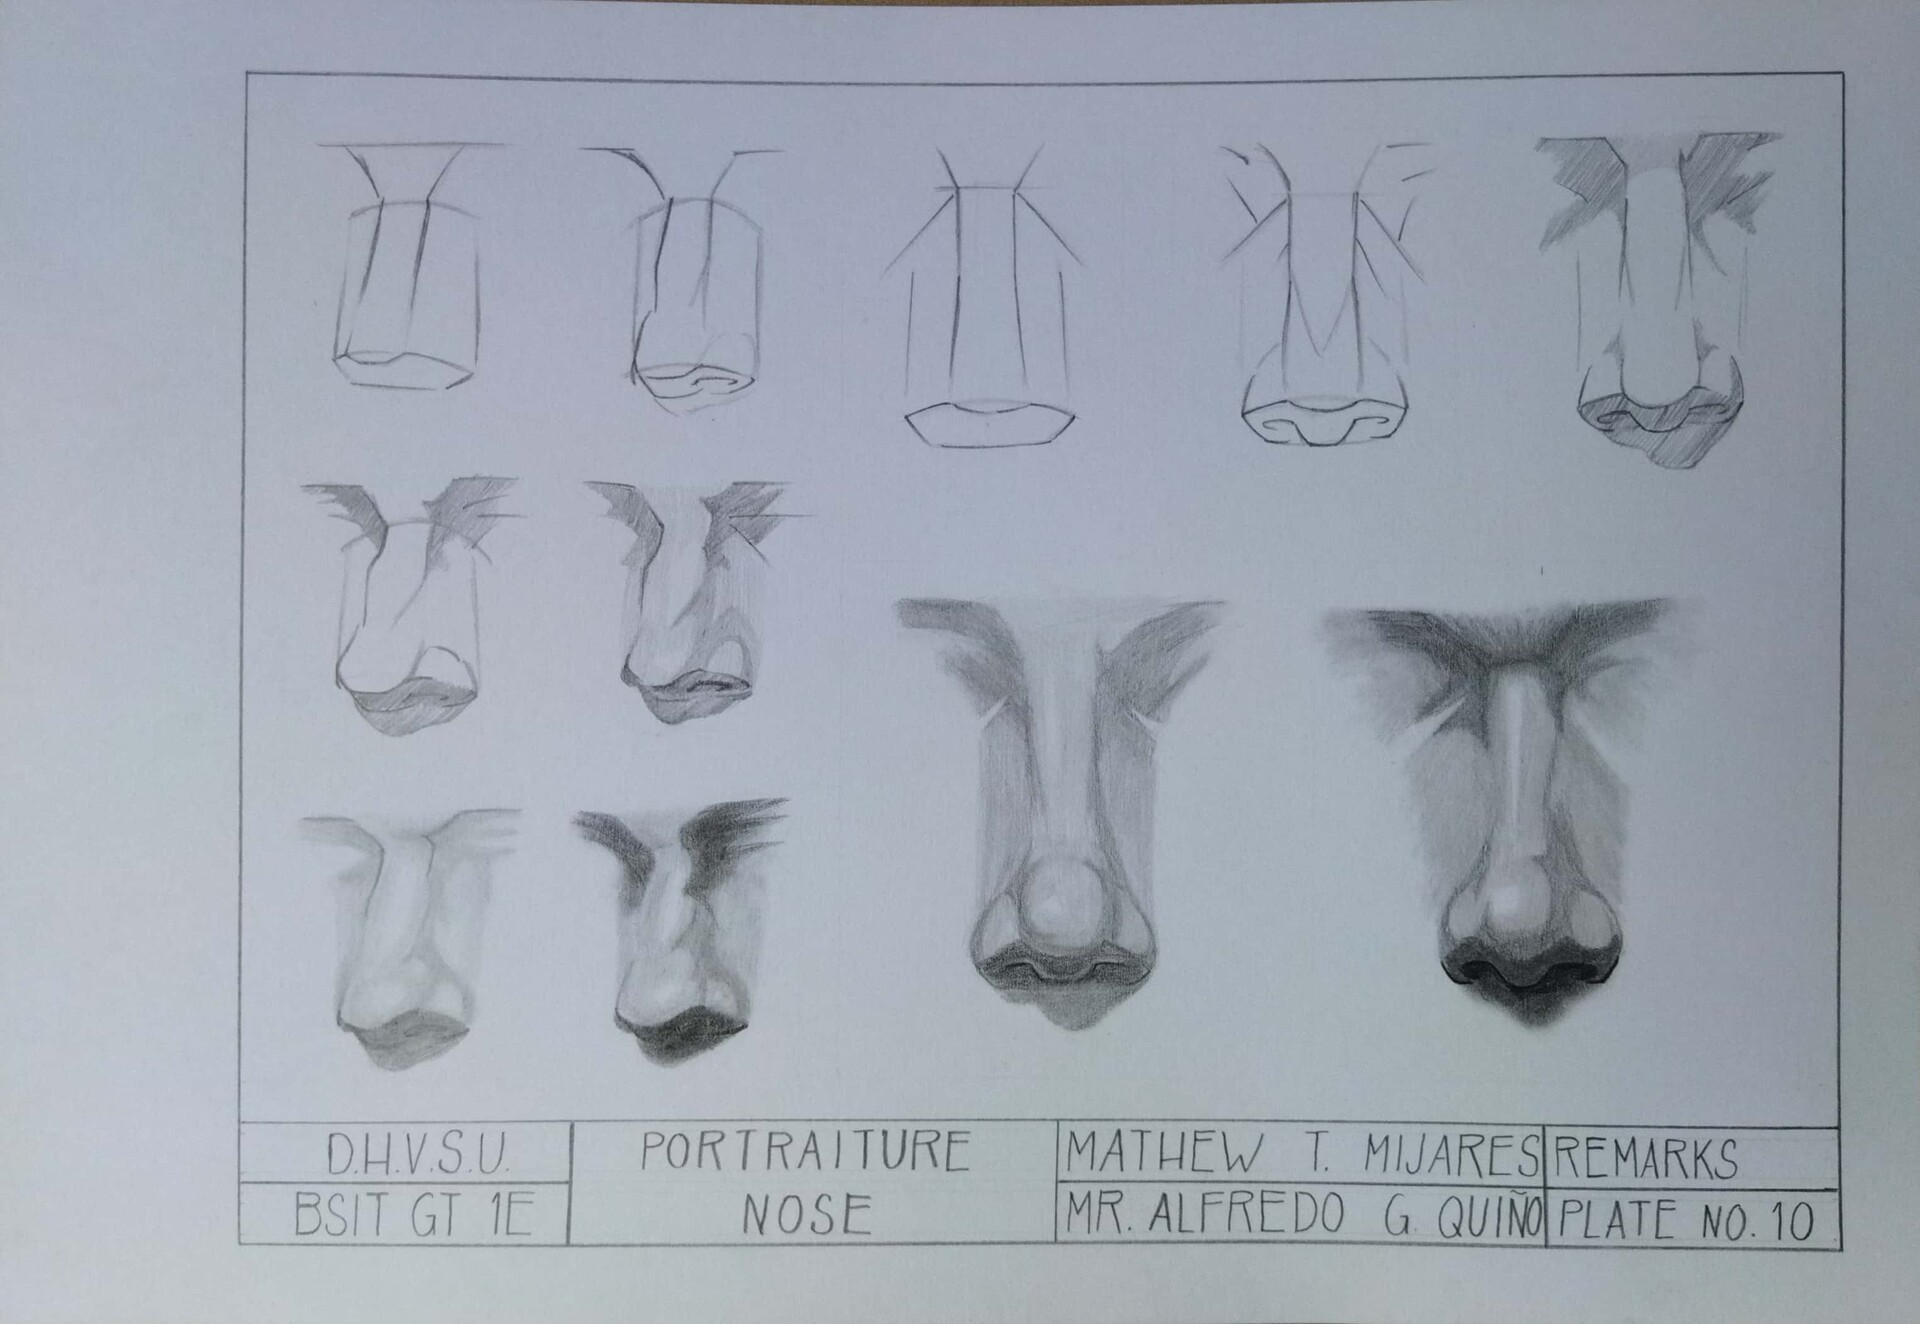 D.H.V.S.U.
BSIT GT 1E
PORTRAITURE
NOSE
MATHEW T. MIJARES
MR. ALFREDO G. QUIÑO
REMARKS
PLATE NO. 10